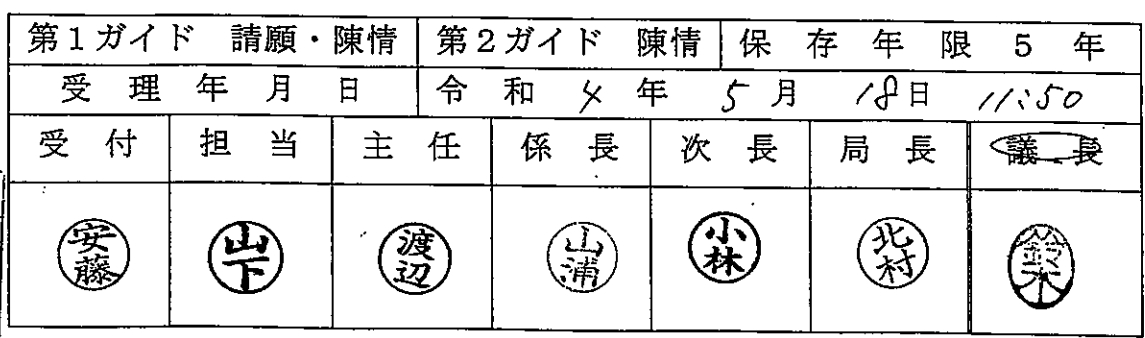 第1ガイド 請願・陳情 第2ガイド 陳情 保存年限 5年
受理年月日 令和4年5月18日 11:50
受付 担当 主任 係長 次長 局長 議長
安藤 山下 渡辺 山浦 小林 北村 鈴木